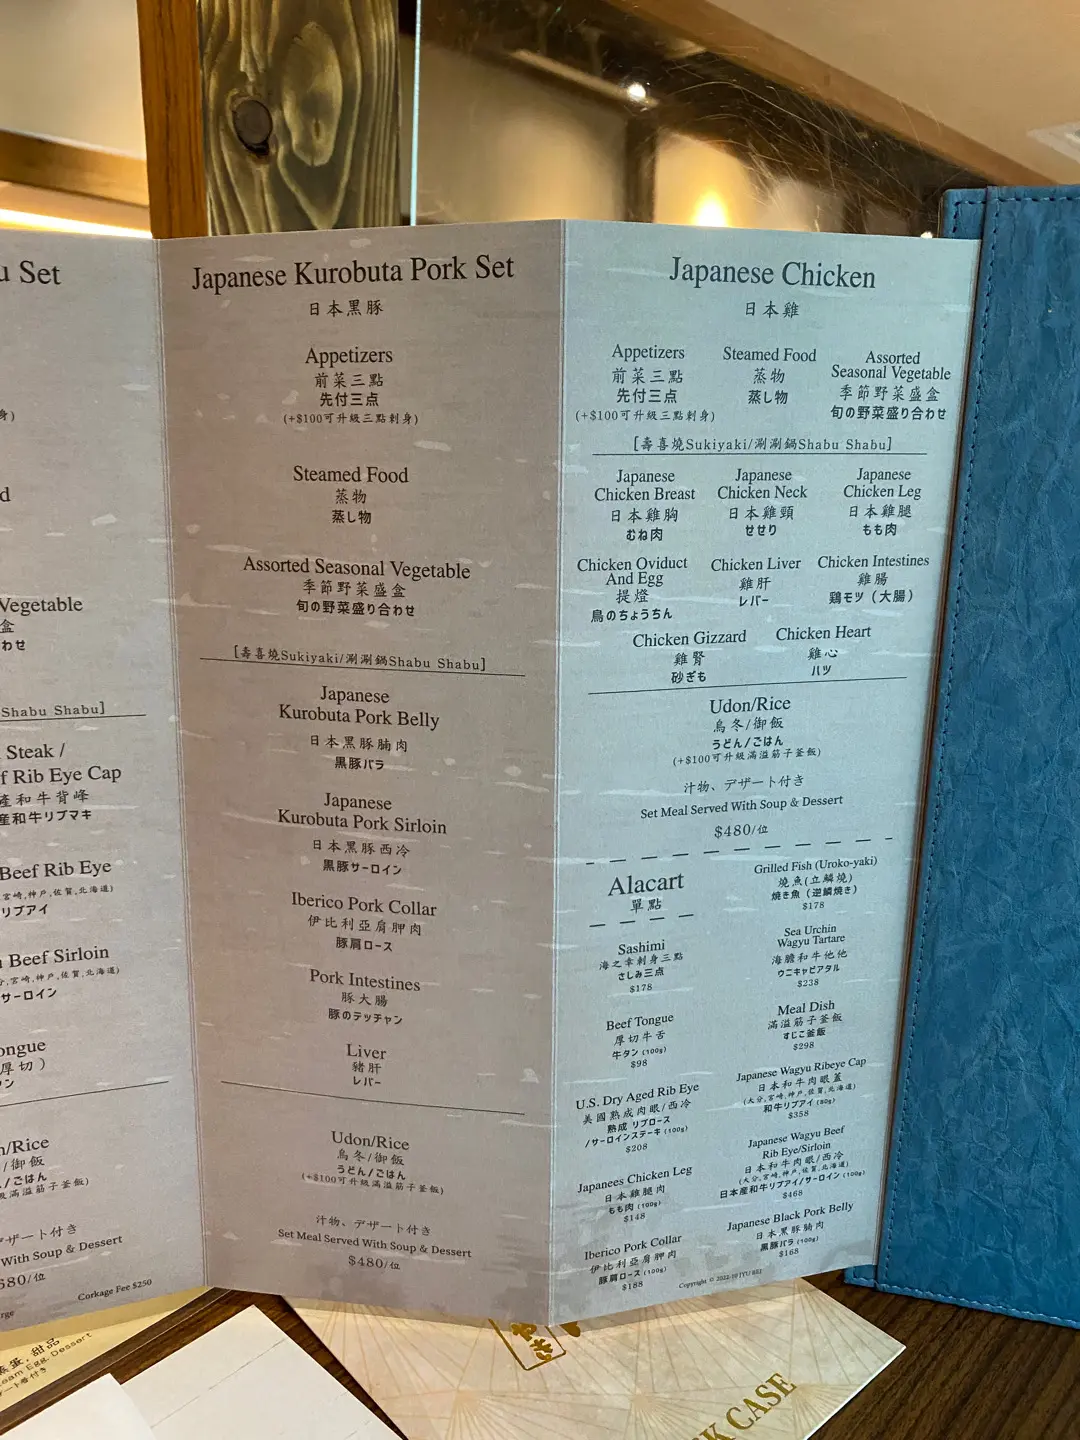 u Set
身)
d
Vegetable
盒
わせ
Shabu Shabu]
Steak /
f Rib Eye Cap
產和牛背峰
産和牛リブマキ
Beef Rib Eye
宮崎,神戸,佐賀,北海道)
リブアイ
Beef Sirloin
分,宮崎,神戸,佐賀,北海道)
サーロイン
ongue
厚切)
ン
n/Rice
/御飯
/ごはん
級滿溢筋子釜飯)
デザート付き
With Soup & Dessert
680/位
Corkage Fee $250
rge
Japanese Kurobuta Pork Set
日本黑豚
Appetizers
前菜三點
先付三点
(+$100可升級三點刺身)
Steamed Food
蒸物
蒸し物
Assorted Seasonal Vegetable
季節野菜盛盒
旬の野菜盛り合わせ
[壽喜燒Sukiyaki/涮涮鍋Shabu Shabu]
Japanese
Kurobuta Pork Belly
日本黑豚腩肉
黒豚バラ
Japanese
Kurobuta Pork Sirloin
日本黑豚西冷
黒豚サーロイン
Iberico Pork Collar
伊比利亞肩胛肉
豚肩ロース
Pork Intestines
豚大腸
豚のテッチャン
Liver
豬肝
レバー
Udon/Rice
烏冬/御飯
うどん/ごはん
(+$100可升級滿溢筋子釜飯)
汁物、デザート付き
Set Meal Served With Soup & Dessert
$480/位
Japanese Chicken
日本雞
Appetizers
前菜三點
先付三点
(+$100可升級三點刺身)
Steamed Food
蒸物
蒸し物
Assorted
Seasonal Vegetable
季節野菜盛盒
旬の野菜盛り合わせ
[壽喜燒Sukiyaki/涮涮鍋Shabu Shabu]
Japanese
Chicken Breast
日本雞胸
むね肉
Japanese
Chicken Neck
日本雞頸
せせり
Japanese
Chicken Leg
日本雞腿
もも肉
Chicken Oviduct
And Egg
提燈
鳥のちょうちん
Chicken Liver
雞肝
レバー
Chicken Intestines
雞腸
鶏モツ（大腸）
Chicken Gizzard
雞腎
砂ぎも
Chicken Heart
雞心
ハツ
Udon/Rice
烏冬/御飯
うどん/ごはん
(+$100可升級滿溢筋子釜飯)
汁物、デザート付き
Set Meal Served With Soup & Dessert
$480/位
Alacart
單點
Sashimi
海之幸刺身三點
さしみ三点
$178
Beef Tongue
厚切牛舌
牛タン (100g)
$98
U.S. Dry Aged Rib Eye
美國熟成肉眼/西冷
熟成 リブロース
/サーロインステーキ (100g)
$208
Japanees Chicken Leg
日本雞腿肉
もも肉 (100g)
$148
Iberico Pork Collar
伊比利亞肩胛肉
豚肩ロース (100g)
$188
Grilled Fish (Uroko-yaki)
燒魚(立鱗燒)
焼き魚（逆鱗焼き）
$178
Sea Urchin
Wagyu Tartare
海膽和牛他他
ウニキャビアタル
$238
Meal Dish
滿溢筋子釜飯
すじこ釜飯
$298
Japanese Wagyu Ribeye Cap
日本和牛肉眼蓋
(大分,宮崎,神戸,佐賀,北海道)
和牛リブアイ (80g)
$358
Japanese Wagyu Beef
Rib Eye/Sirloin
日本和牛肉眼/西冷
(大分,宮崎,神戸,佐賀,北海道)
日本産和牛リブアイ/サーロイン (100g)
$468
Japanese Black Pork Belly
日本黑豚腩肉
黒豚バラ (100g)
$168
Copyright © 2022-10
蒸蛋, 甜品
eam Egg, Dessert
ート番付き
やき
CK CASE